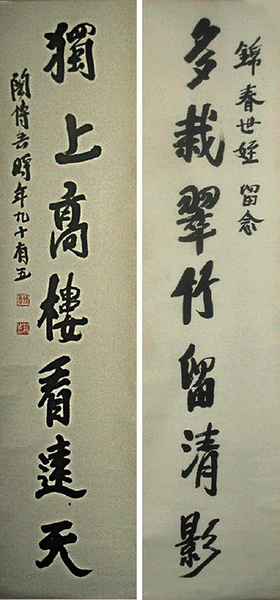 錦春世姪 留念
多栽翠竹留清影
獨上高樓看遠天
陶博吾時年九十有五